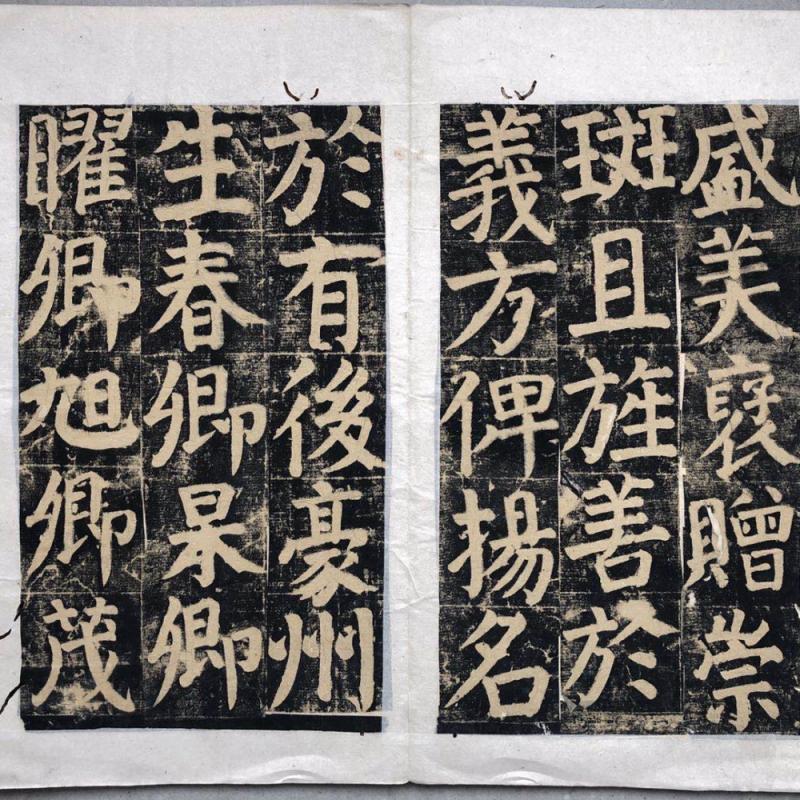 盛美褒贈崇
班且旌善於
義方俾揚名
於有後豪州
生春卿杲卿
曜卿旭卿茂